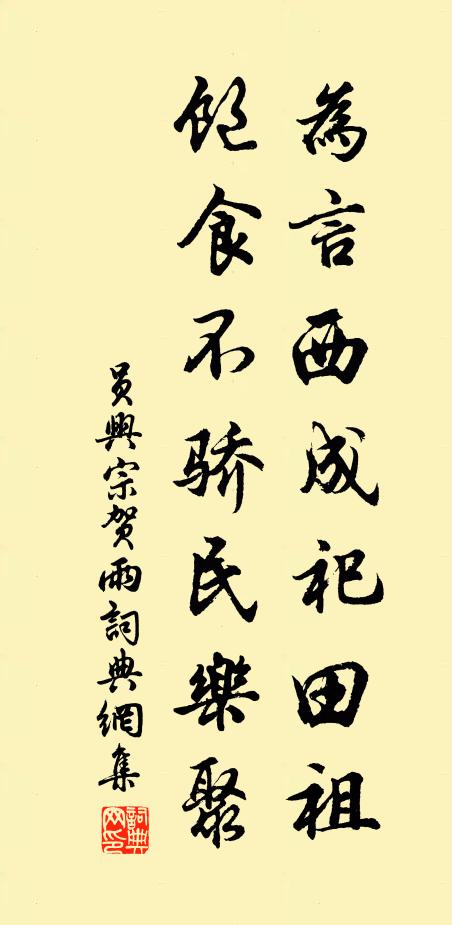 為言西成祀田祖
飽食不骄民樂聚
員興宗贺雨詞典網集
詞典网印